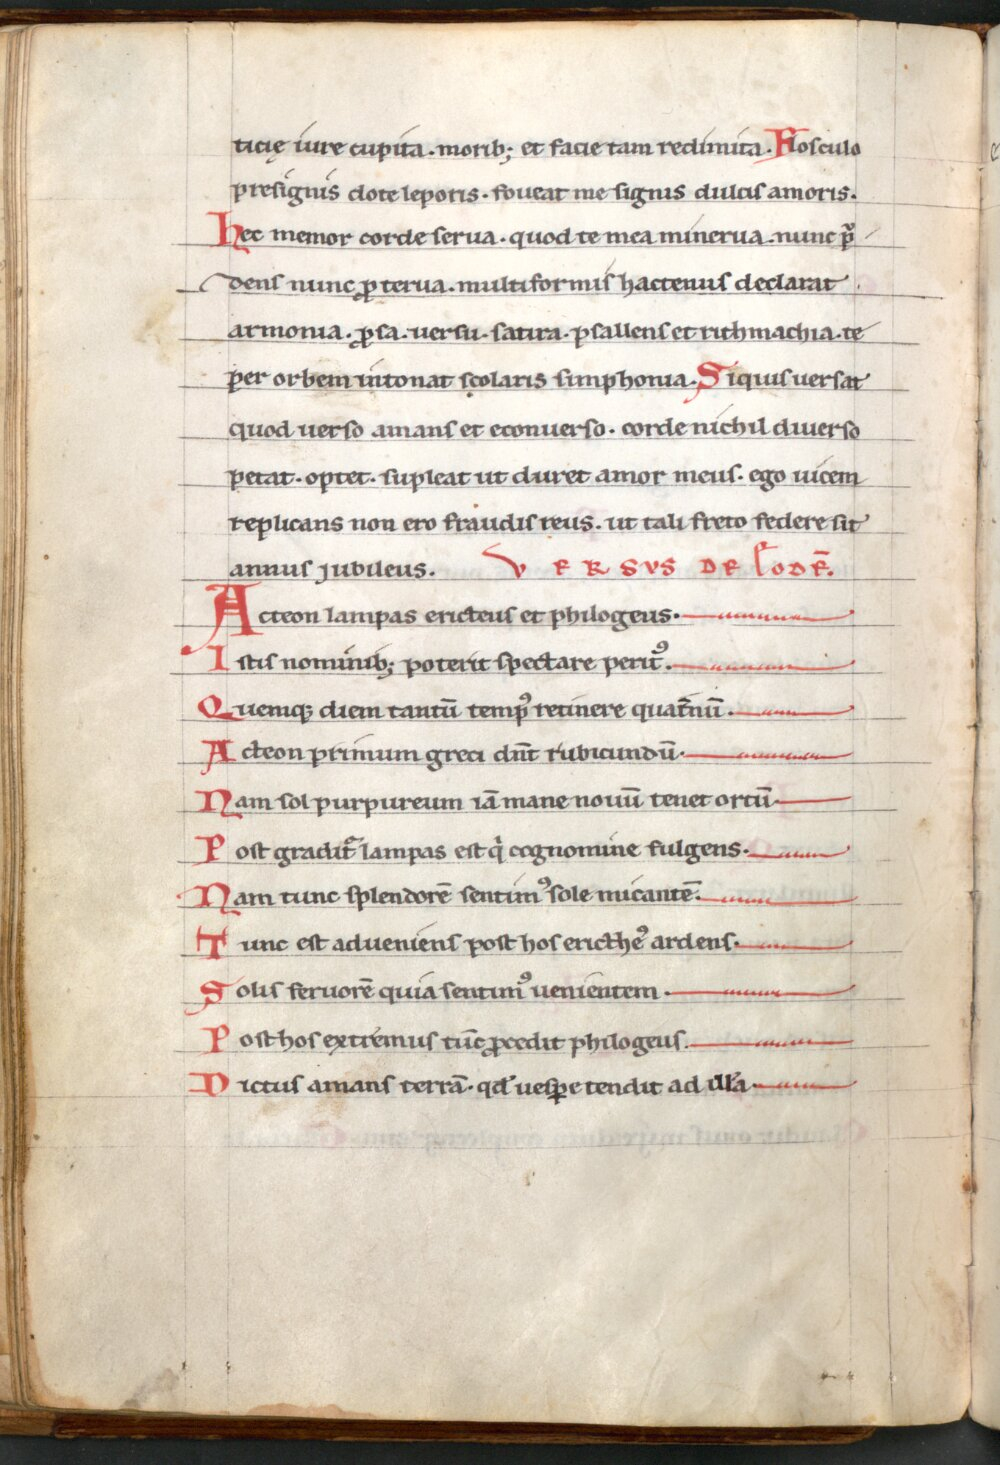 ticię iure cupita. morib; et facie tam redimita. Flosculo
presignis dote leporis. foueat me signis dulcis amoris.
Hec memor corde serua. quod te mea minerua. nunc p̄
dens nunc ꝓterua. multiformis hactenus declarat
armonia. ꝓsa. uersu. satira. psallens et rithmachia. te
per orbem intonat scolaris simphonia. Siquis uersat
quod uerso amans et econuerso. corde nichil diuerso
petat. optet. supleat ut duret amor meus. ego uicem
replicans non ero fraudis reus. ut tali freto federe sit
annus jubileus. VERSVS DE
Acteon lampas ericteus et philogeus.
Istis nominib; poterit spectare perit᷒.
Quemq; diem tantū temp᷒ retinere quat̄nū.
Acteon primum greci dn̄t rubicundū.
Nam sol purpureum iā mane nouū tenet ortū.
Post gradit᷑ lampas est q̇ cognomine fulgens.
Nam tunc splendorē sentim᷒ sole micantē.
Tunc est adueniens post hos ericthe᷒ ardens.
Solis feruorē quia sentim᷒ uenientem.
Post hos extremus tūc ꝓcedit philogeus.
Dictus amans terrā. qd̄ uesꝑe tendit ad illā.